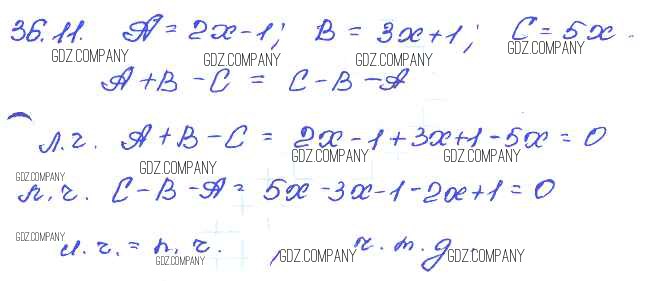 36.11. A = 2x-1; B = 3x+1; C = 5x.
GDZ.COMPANY GDZ.COMPANY GDZ.COMPANY GDZ.COMPANY
A+B-C = C-B-A
л.ч. A+B-C = 2x-1+3x+1-5x = 0
GDZ.COMPANY GDZ.COMPANY GDZ.COMPANY
GDZ.COMPANY
п.ч. C-B-A = 5x-3x-1-2x+1 = 0
GDZ.COMPANY
л.ч. = п.ч. ч.т.д
GDZ.COMPANY GDZ.COMPANY GDZ.COMPANY